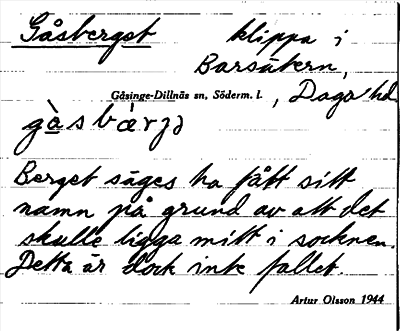 Gåsberget klippa i
Barsätern,
Gåsinge-Dillnäs sn, Söderm. l., Daga hd
gàsbárjə
Berget säges ha fått sitt
namn på grund av att det
skulle ligga mitt i socknen.
Detta är dock inte fallet.
Artur Olsson 1944